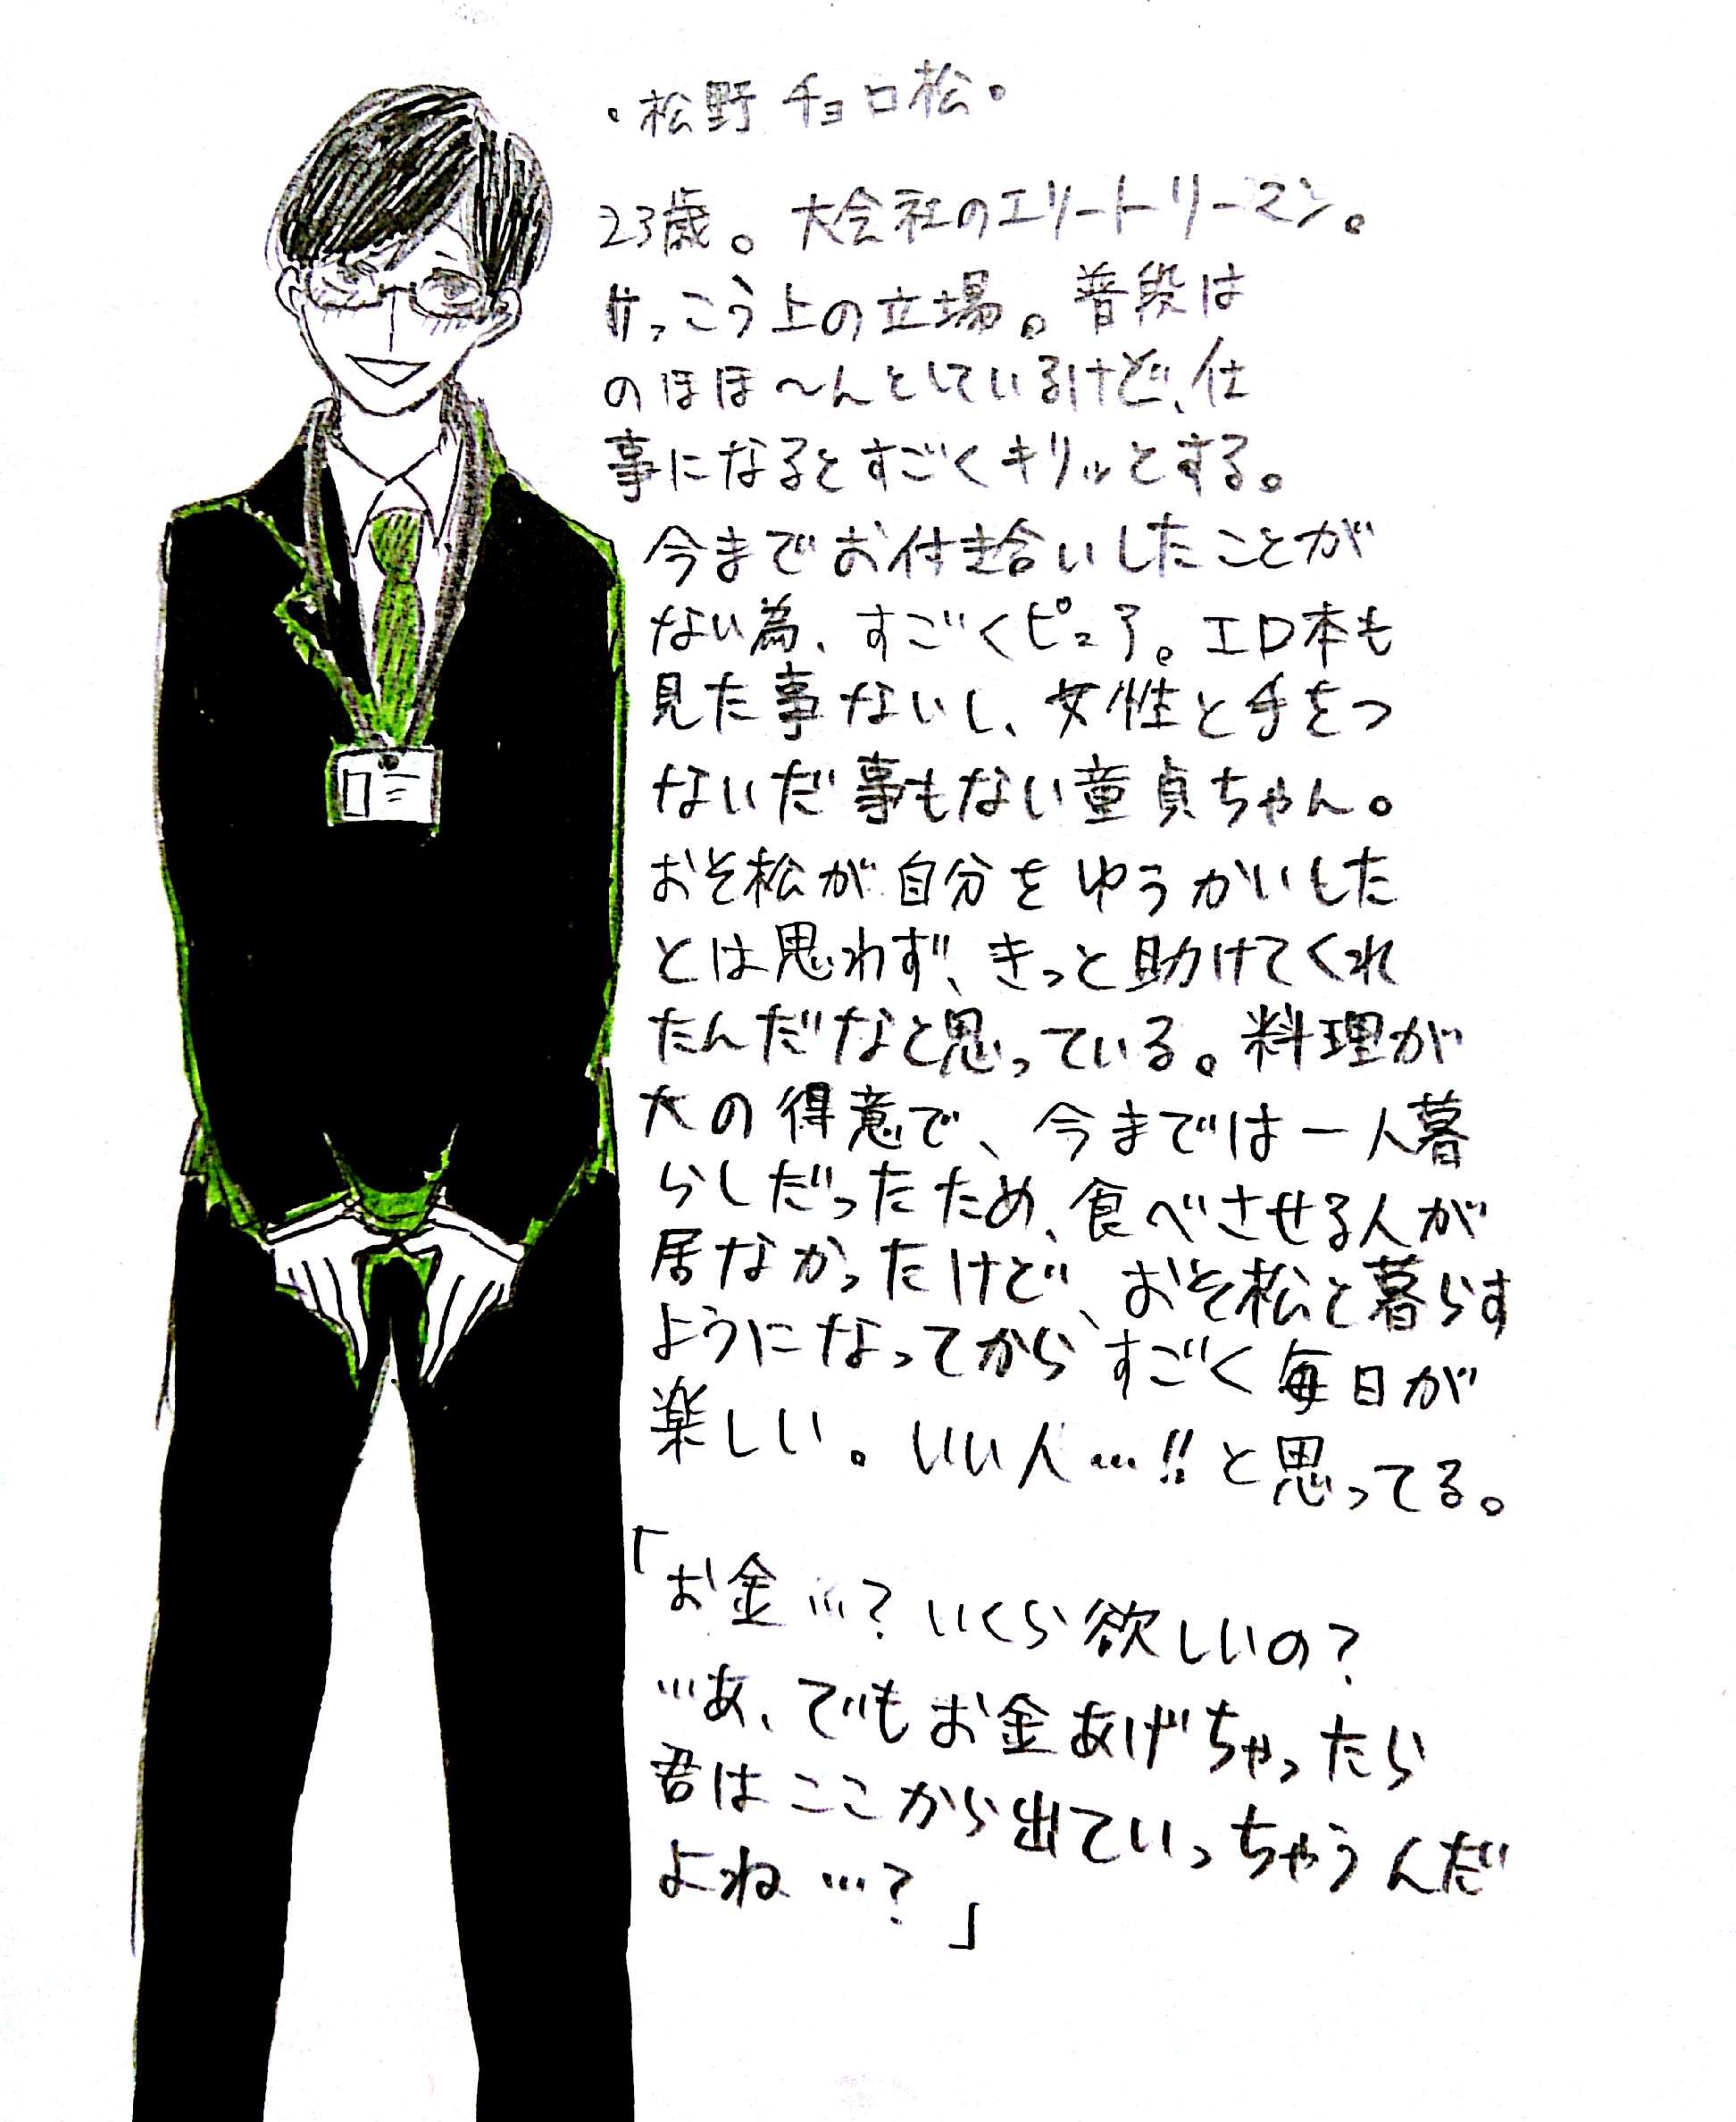 ・松野チョロ松・
23歳。大会社のエリートリーマン。
けっこう上の立場。普段は
のほほ〜んとしているけど、仕
事になるとすごくキリッとする。
今までお付き合いしたことが
ない為、すごくピュア。エロ本も
見た事ないし、女性と手をつ
ないだ事もない童貞ちゃん。
おそ松が自分をゆうかいした
とは思わず、きっと助けてくれ
たんだなと思っている。料理が
大の得意で、今までは一人暮
らしだったため、食べさせる人が
居なかったけど、おそ松と暮らす
ようになってからすごく毎日が
楽しい。いい人…!!と思ってる。
「お金…?いくら欲しいの?
…あ、でもお金あげちゃったら
君はここから出ていっちゃうんだ
よね…?」